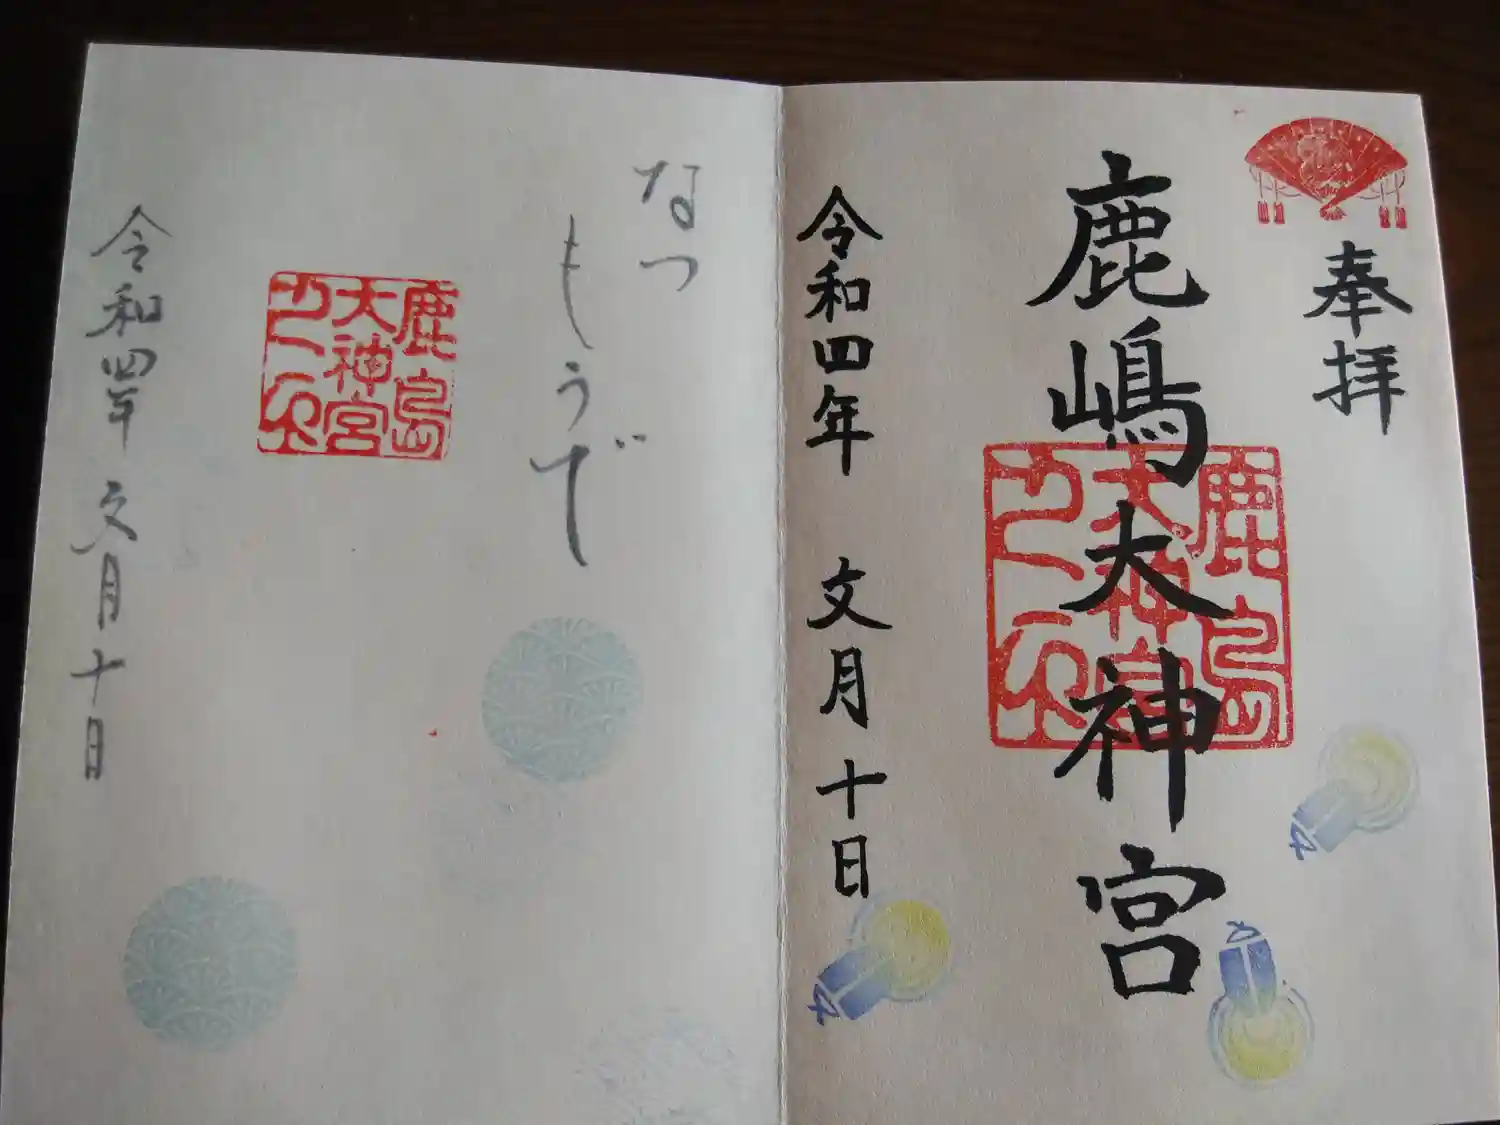 奉拝
鹿嶋大神宮
鹿島
大神宮
令和四年 文月十日
なつ
もうで
鹿島
大神宮
令和四年 文月十日